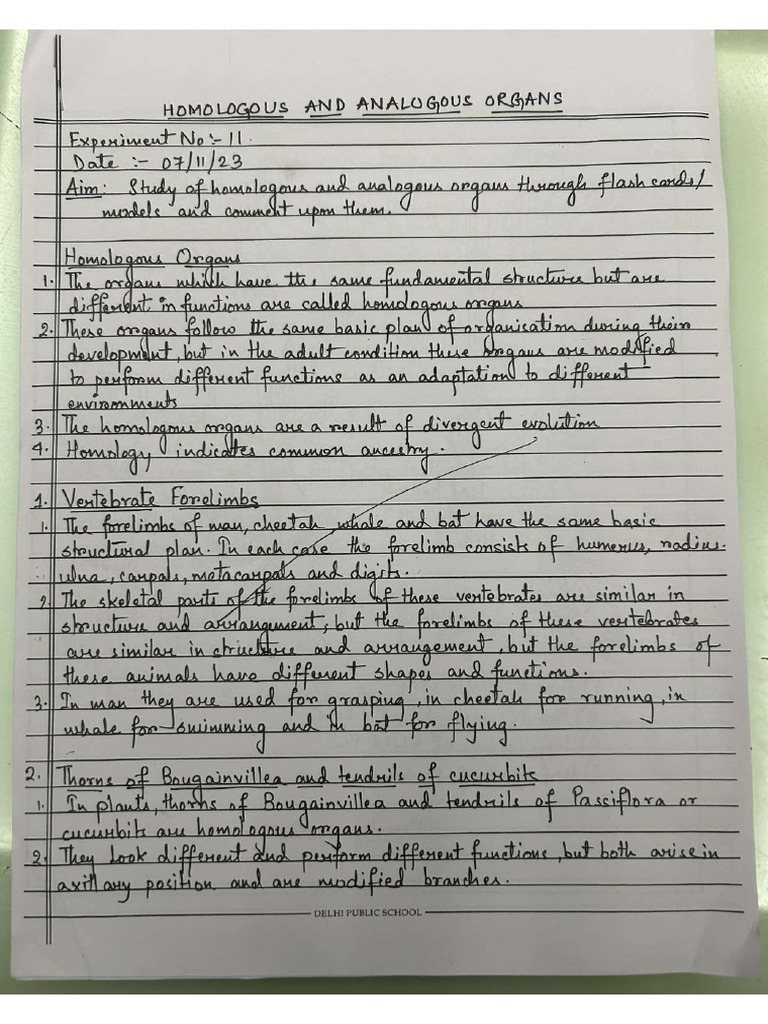 HOMOLOGOUS AND ANALOGOUS ORGANS
Experiment No:- 11.
Date :- 07/11/23
Aim: Study of homologous and analogous organs through flash cards/
models and comment upon them.
Homologous Organs
1. The organs which have the same fundamental structure but are
different in functions are called homologous organs
2. These organs follow the same basic plan of organisation during their
development, but in the adult condition these organs are modified
to perform different functions as an adaptation to different
environments
3. The homologous organs are a result of divergent evolution
4. Homology indicates common ancestry.
1. Vertebrate Forelimbs
1. The forelimbs of man, cheetah, whale and bat have the same basic
structural plan. In each case the forelimb consists of humerus, radius.
ulna, carpals, metacarpals and digits.
2. The skeletal parts of the forelimbs of these vertebrates are similar in
structure and arrangement, but the forelimbs of these vertebrates
are similar in structure and arrangement, but the forelimbs of
these animals have different shapes and functions.
3. In man they are used for grasping, in cheetah for running, in
whale for swimming and in bat for flying.
2. Thorns of Bougainvillea and tendrils of cucurbits
1. In plants, thorns of Bougainvillea and tendrils of Passiflora or
cucurbits are homologous organs.
2. They look different and perform different functions, but both arise in
axillary position and are modified branches.
DELHI PUBLIC SCHOOL